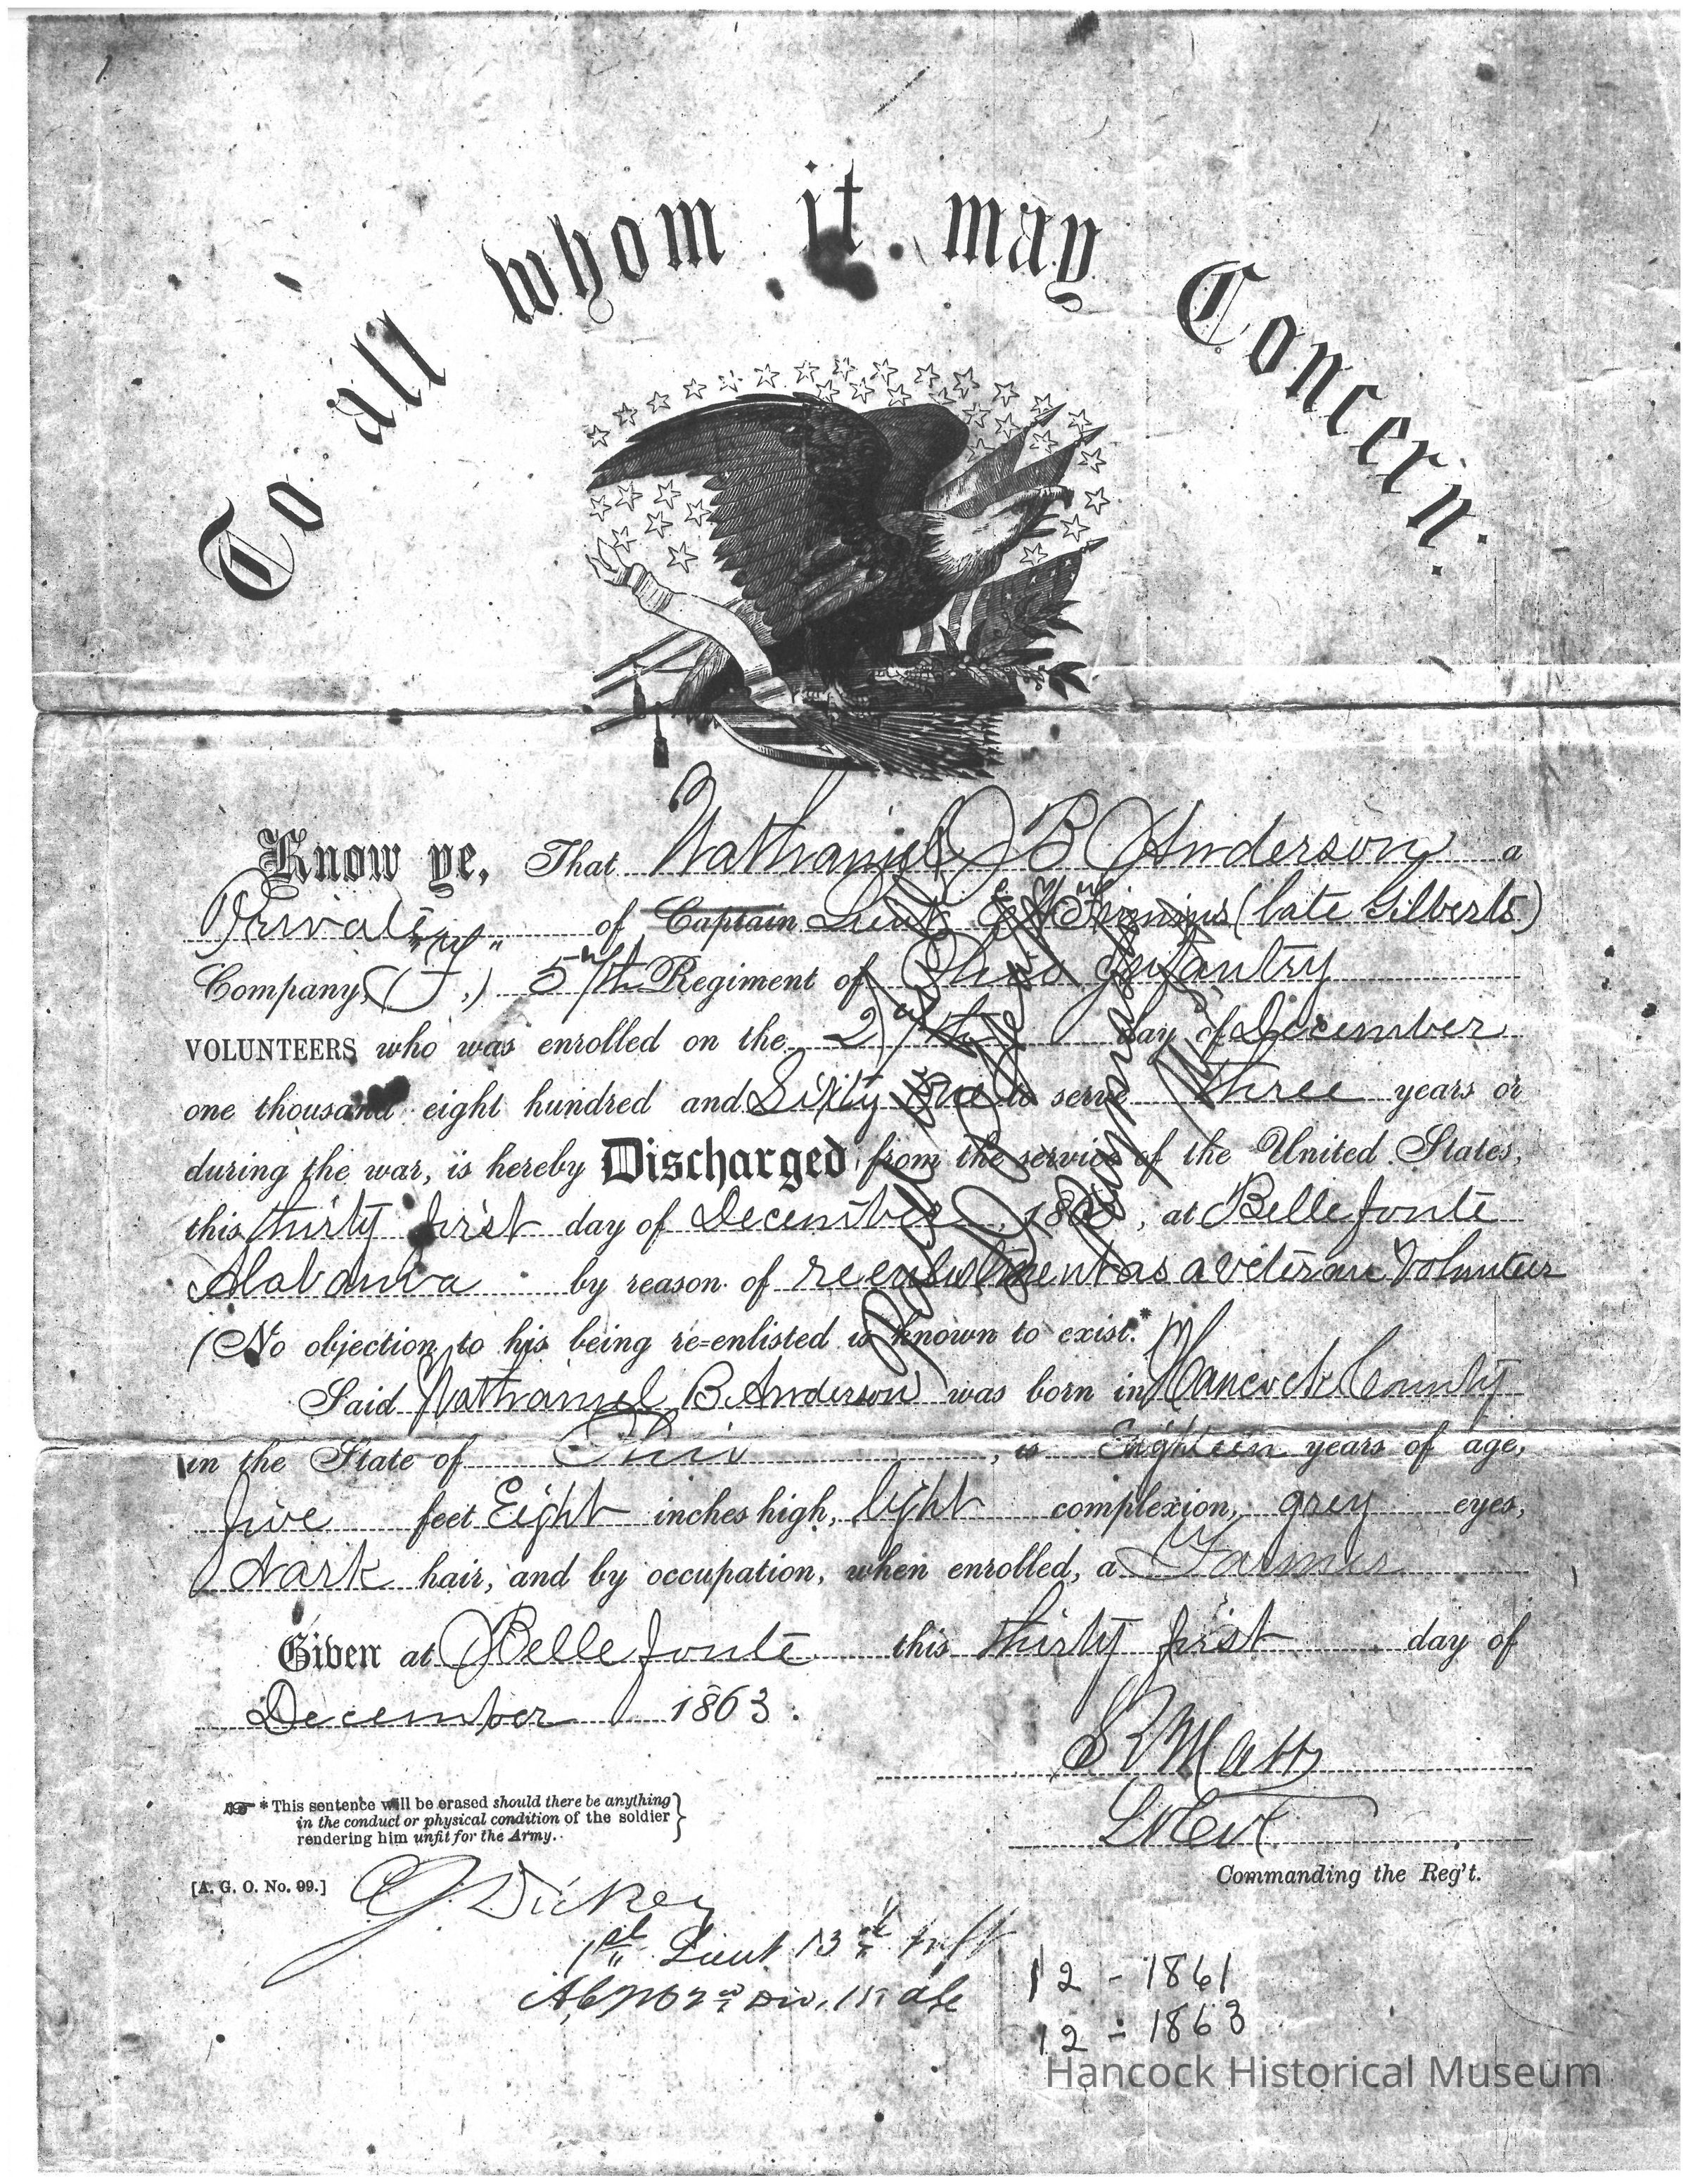 To all whom it may Concern.
Know ye, That Nathaniel B Anderson a
Private of Captain Lieut (late Gilberts)
Company, (F,) 57th Regiment of Ohio Infantry
VOLUNTEERS who was enrolled on the day of December
one thousand eight hundred and Sixty one to serve three years or
during the war, is hereby Discharged from the service of the United States,
this thirty first day of December, 1863, at Bellefonte
Alabama by reason of reenlistment as a veteran Volunteer
(No objection to his being re-enlisted is known to exist.*)
Said Nathaniel B. Anderson was born in Hancock County
in the State of Ohio, is Eighteen years of age,
five feet Eight inches high, light complexion, grey eyes,
dark hair, and by occupation, when enrolled, a Farmer
Given at Bellefonte this thirty first day of
December 1863.
*This sentence will be erased should there be anything
in the conduct or physical condition of the soldier
rendering him unfit for the Army.
Commanding the Reg't.
[A. G. O. No. 99.]
Dickey
1st Lieut 13th Inft
12 - 1861
12 - 1863
Hancock Historical Museum